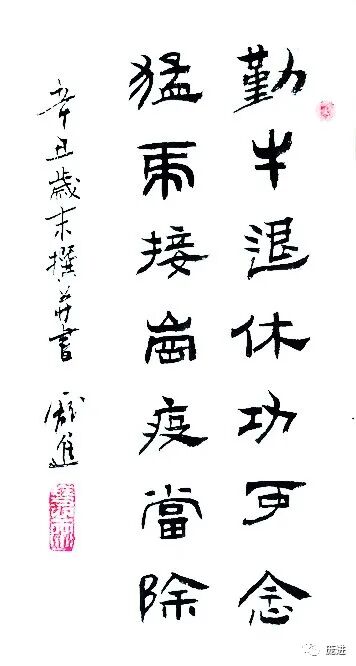 勤牛退休功可念
猛虎接崗疫當除
辛丑歲末撰并書 龐進
庞进